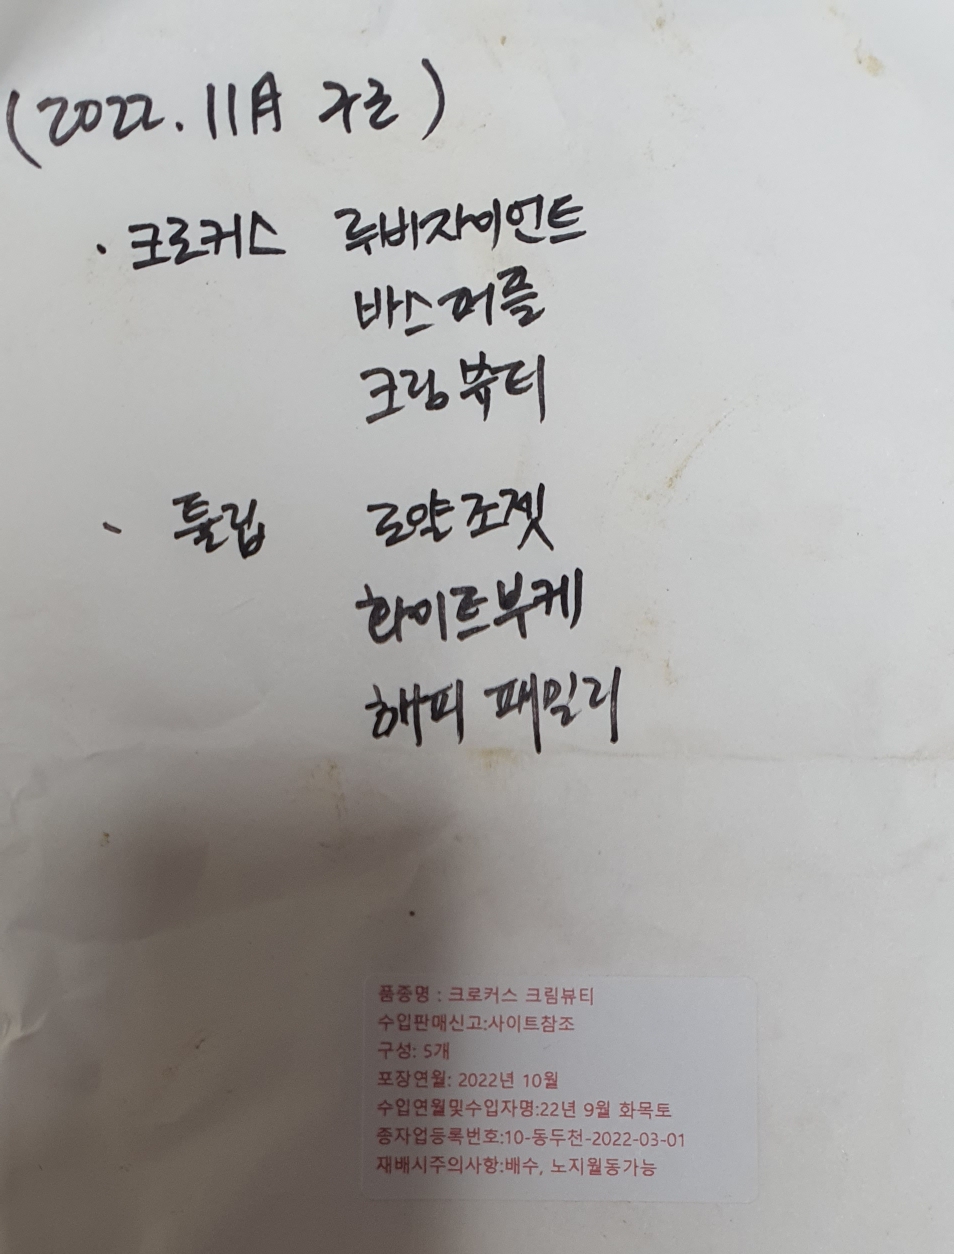 (2022. 11月 구근)
· 크로커스 루비자이언트
바스퍼플
크림뷰티
· 튤립 로얄조젯
화이트부케
해피 패밀리
품종명 : 크로커스 크림뷰티
수입판매신고:사이트참조
구성: 5개
포장연월: 2022년 10월
수입연월및수입자명:22년 9월 화목토
종자업등록번호:10-동두천-2022-03-01
재배시주의사항:배수, 노지월동가능